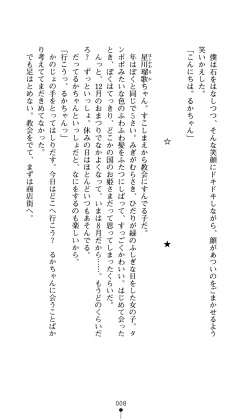 僕は石をはなしつつ、そんな笑顔にドキドキしながら、顔があついのをごまかせるよう
笑いかえした。
「こんにちは。るかちゃん」
☆　★
星川瑠歌ちゃん。すこしまえから教会にすんでる子だ。
年はぼくと同じで5さい、みぎがむらさき、ひだりが緑のふしぎな目をした女の子。タ
ンポポみたいな色のふわふわ髪をふたつにしばってて、すっごくかわいい。はじめて会った
とき、ぼくはてっきり、どこかの国のお姫さまだって思ってしまったくらいだ。
んーと、12月のおまつりでなかよくなって、いまは8月だから……。もうどのくらいだ
ろ？ずっといっしょ。休みの日はほとんどいつもあそんでる。
だってるかちゃんといっしょだと、なにをするのも楽しいから。
「行こうっ。るかちゃんっ」
かのじょの手をとってはしりだす。今日はどこへ行こう？るかちゃんに会うことばか
り考えててまだきめてなかった。
でも足はとめない。教会をでて、まずは商店街へ。
008